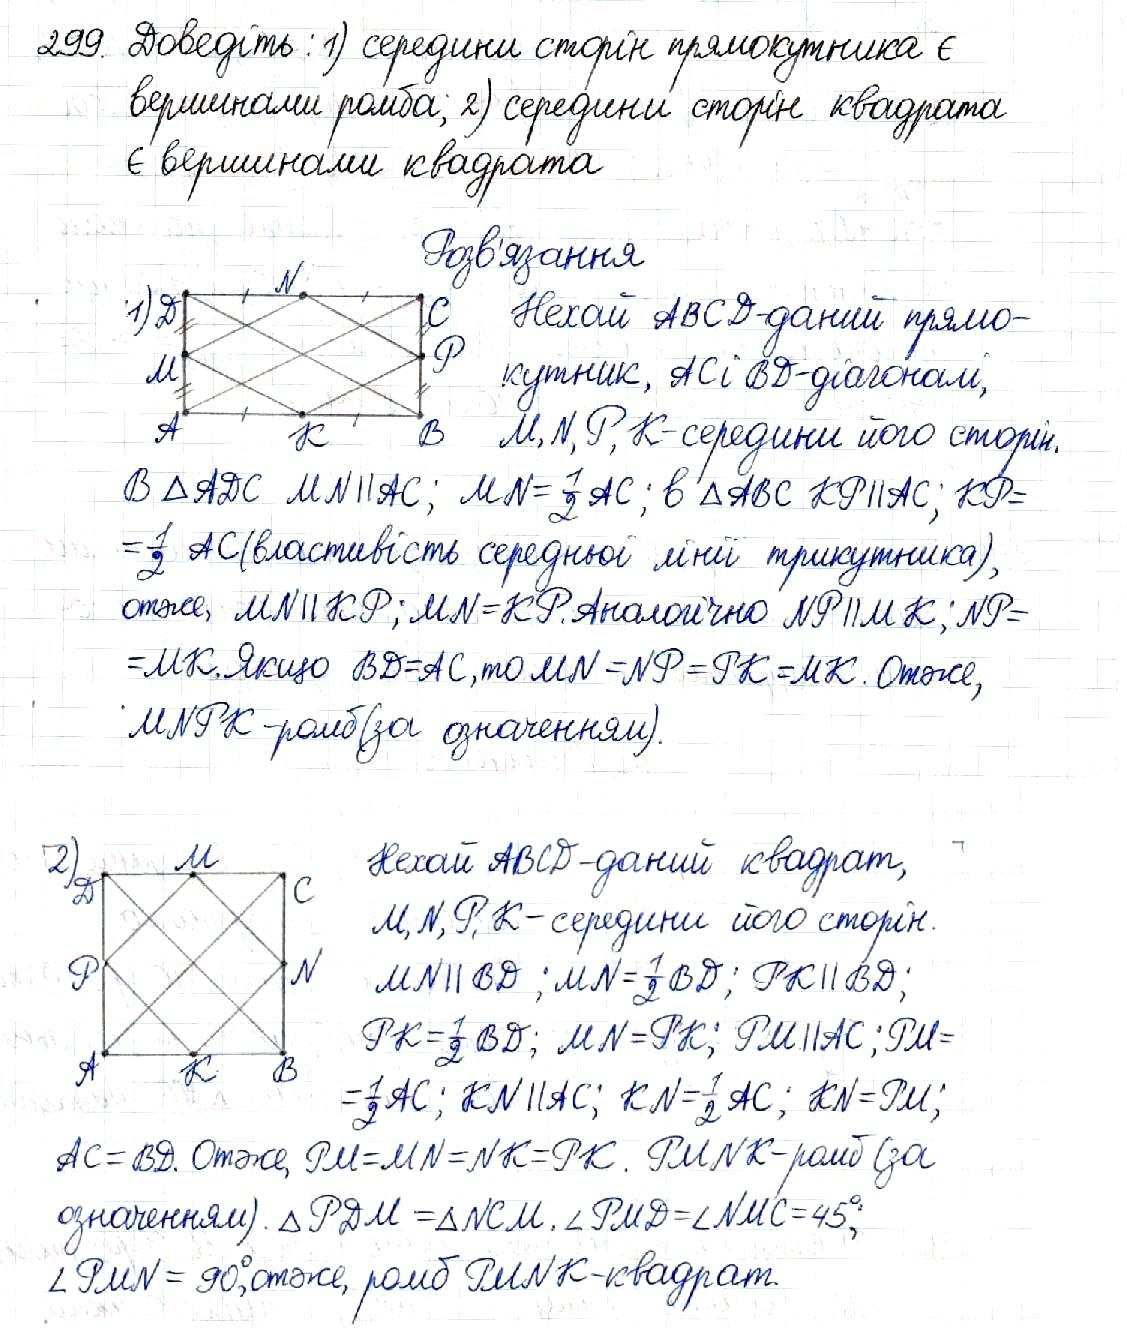 299. Доведіть: 1) середини сторін прямокутника є
вершинами ромба; 2) середини сторін квадрата
є вершинами квадрата
Розв'язання
1) D N C
M P
A K B
Нехай ABCD-даний прямо-
кутник, AC і BD-діагоналі,
M, N, P, K-середини його сторін.
В △ADC MN||AC; MN=1/2 AC; в △ABC KP||AC; KP=
=1/2 AC (властивість середньої лінії трикутника),
отже, MN||KP; MN=KP. Аналогічно NP||MK; NP=
=MK. Якщо BD=AC, то MN=NP=PK=MK. Отже,
MNPK-ромб (за означенням).
2) D M C
P N
A K B
Нехай ABCD-даний квадрат,
M, N, P, K-середини його сторін.
MN||BD; MN=1/2 BD; PK||BD;
PK=1/2 BD; MN=PK; PM||AC; PM=
=1/2 AC; KN||AC; KN=1/2 AC; KN=PM;
AC=BD. Отже, PM=MN=NK=PK. PMNK-ромб (за
означенням). △PDM=△NCM. ∠PMD=∠NMC=45°;
∠PMN=90°, отже, ромб PMNK-квадрат.